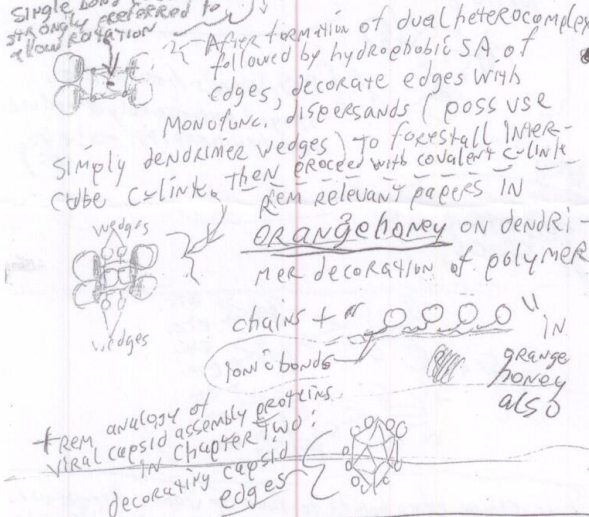 single bond
strongly preferred to
allow rotation
After formation of dual heterocomplex
followed by hydrophobic SA of
edges, decorate edges with
monofunc. dispersands (poss use
simply dendrimer wedges) to forestall inter-
cube c-link. Then proceed with covalent c-link
Rem relevant papers in
orangehoney on dendri-
mer decoration of polymer
wedges
wedges
chains + " " in
orange
honey
also
ionic bonds
+ Rem analogy of
viral capsid assembly proteins
in Chapter Two:
decorating capsid
edges